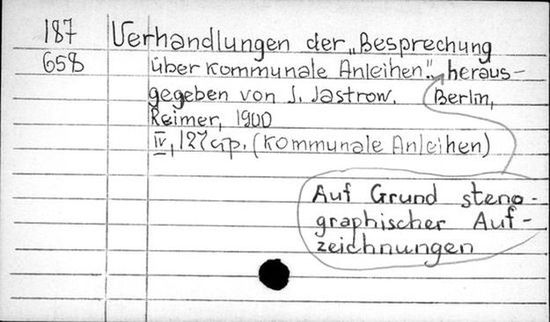 187
658
Verhandlungen der „Besprechung
über kommunale Anleihen". heraus-
gegeben von J. Jastrow. Berlin,
Reimer, 1900
IV, 127 p. (kommunale Anleihen)
Auf Grund steno-
graphischer Auf-
zeichnungen